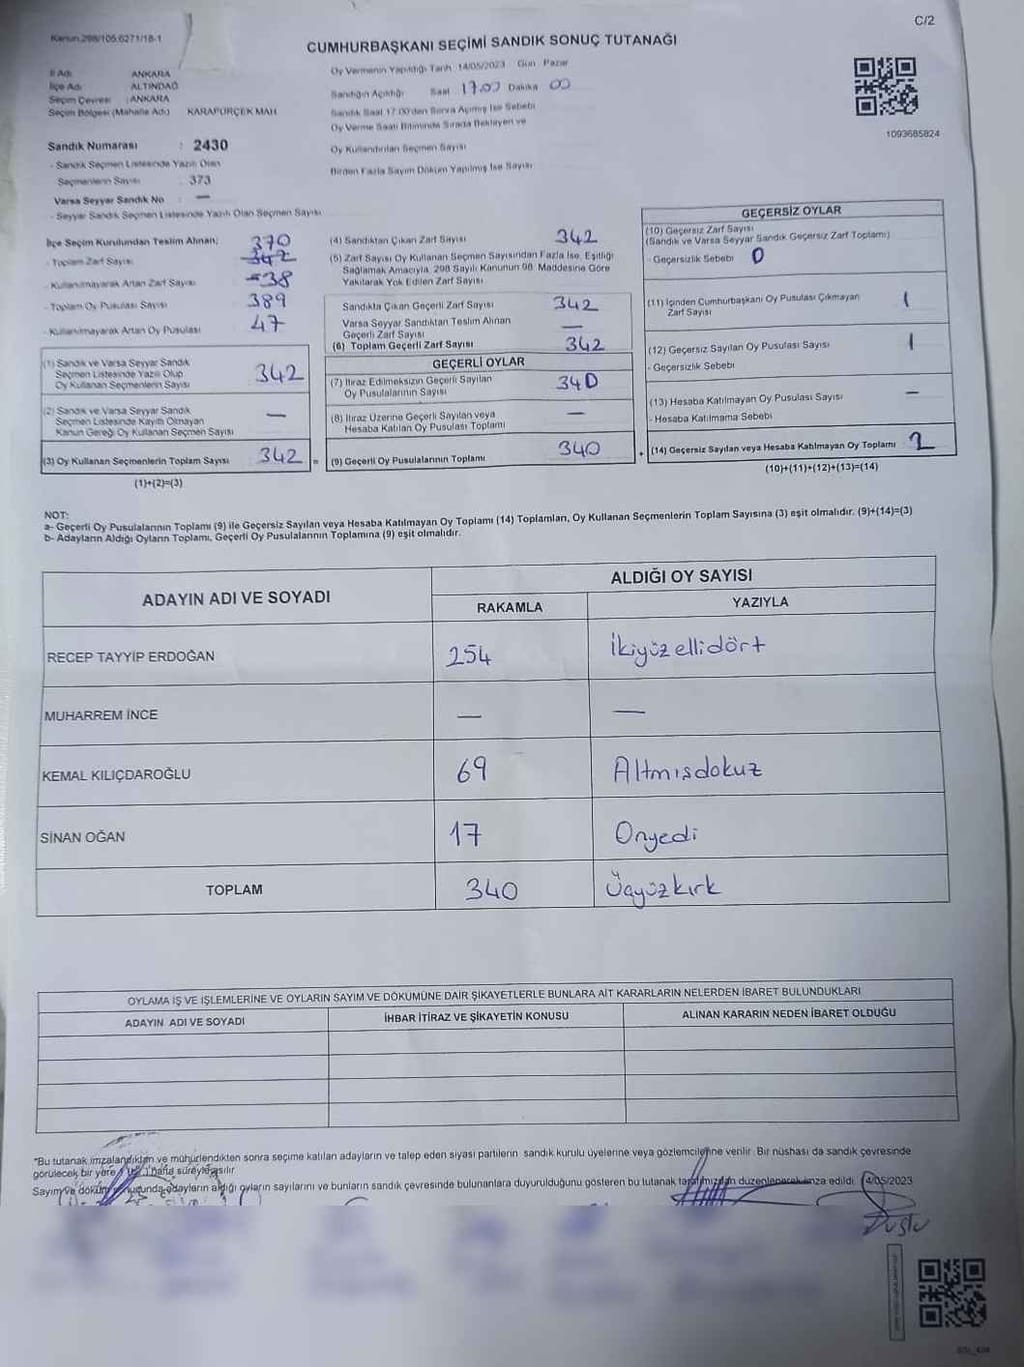 C/2
Kanun 298/105.6271/18-1
CUMHURBAŞKANI SEÇİMİ SANDIK SONUÇ TUTANAĞI
İl Adı ANKARA
İlçe Adı ALTINDAĞ
Seçim Çevresi : ANKARA
Seçim Bölgesi (Mahalle Adı) KARAPÜRÇEK MAH
Oy Vermenin Yapıldığı Tarih 14/05/2023 Gün Pazar
Sandığın Açıldığı Saat 17.00 Dakika 00
Sandık Saat 17.00'den Sonra Açılmış İse Sebebi
Oy Verme Saati Bitiminde Sırada Bekleyen ve
Oy Kullandırılan Seçmen Sayısı
Birden Fazla Sayım Döküm Yapılmış İse Sayısı
1093685824
Sandık Numarası : 2430
- Sandık Seçmen Listesinde Yazılı Olan
Seçmenlerin Sayısı : 373
Varsa Seyyar Sandık No : —
- Seyyar Sandık Seçmen Listesinde Yazılı Olan Seçmen Sayısı
İlçe Seçim Kurulundan Teslim Alınan; 370
- Toplam Zarf Sayısı 342
- Kullanılmayarak Artan Zarf Sayısı 38
- Toplam Oy Pusulası Sayısı 389
- Kullanılmayarak Artan Oy Pusulası 47
(1) Sandık ve Varsa Seyyar Sandık
Seçmen Listesinde Yazılı Olup
Oy Kullanan Seçmenlerin Sayısı 342
(2) Sandık ve Varsa Seyyar Sandık
Seçmen Listesinde Kayıtlı Olmayan
Kanun Gereği Oy Kullanan Seçmen Sayısı —
(3) Oy Kullanan Seçmenlerin Toplam Sayısı 342 =
(1)+(2)=(3)
(4) Sandıktan Çıkan Zarf Sayısı 342
(5) Zarf Sayısı Oy Kullanan Seçmen Sayısından Fazla İse, Eşitliği
Sağlamak Amacıyla, 298 Sayılı Kanunun 98. Maddesine Göre
Yakılarak Yok Edilen Zarf Sayısı
Sandıkta Çıkan Geçerli Zarf Sayısı 342
Varsa Seyyar Sandıktan Teslim Alınan
Geçerli Zarf Sayısı —
(6) Toplam Geçerli Zarf Sayısı 342
GEÇERLİ OYLAR
(7) İtiraz Edilmeksizin Geçerli Sayılan
Oy Pusulalarının Sayısı 340
(8) İtiraz Üzerine Geçerli Sayılan veya
Hesaba Katılan Oy Pusulası Toplamı —
(9) Geçerli Oy Pusulalarının Toplamı 340 +
GEÇERSİZ OYLAR
(10) Geçersiz Zarf Sayısı
(Sandık ve Varsa Seyyar Sandık Geçersiz Zarf Toplamı)
- Geçersizlik Sebebi 0
(11) İçinden Cumhurbaşkanı Oy Pusulası Çıkmayan
Zarf Sayısı 1
(12) Geçersiz Sayılan Oy Pusulası Sayısı 1
- Geçersizlik Sebebi
(13) Hesaba Katılmayan Oy Pusulası Sayısı —
- Hesaba Katılmama Sebebi
(14) Geçersiz Sayılan veya Hesaba Katılmayan Oy Toplamı 2
(10)+(11)+(12)+(13)=(14)
NOT:
a- Geçerli Oy Pusulalarının Toplamı (9) ile Geçersiz Sayılan veya Hesaba Katılmayan Oy Toplamı (14) Toplamları, Oy Kullanan Seçmenlerin Toplam Sayısına (3) eşit olmalıdır. (9)+(14)=(3)
b- Adayların Aldığı Oyların Toplamı, Geçerli Oy Pusulalarının Toplamına (9) eşit olmalıdır.
ADAYIN ADI VE SOYADI
ALDIĞI OY SAYISI
RAKAMLA YAZIYLA
RECEP TAYYİP ERDOĞAN 254 İkiyüzellidört
MUHARREM İNCE — —
KEMAL KILIÇDAROĞLU 69 Altmışdokuz
SİNAN OĞAN 17 Onyedi
TOPLAM 340 Üçyüzkırk
OYLAMA İŞ VE İŞLEMLERİNE VE OYLARIN SAYIM VE DÖKÜMÜNE DAİR ŞİKAYETLERLE BUNLARA AİT KARARLARIN NELERDEN İBARET BULUNDUKLARI
ADAYIN ADI VE SOYADI İHBAR İTİRAZ VE ŞİKAYETİN KONUSU ALINAN KARARIN NEDEN İBARET OLDUĞU
*Bu tutanak imzalandıktan ve mühürlendikten sonra seçime katılan adayların ve talep eden siyasi partilerin sandık kurulu üyelerine veya gözlemcilerine verilir. Bir nüshası da sandık çevresinde
görülecek bir yere hafta süreyle asılır.
Sayım ve döküm sonucunda adayların aldığı oyların sayılarını ve bunların sandık çevresinde bulunanlara duyurulduğunu gösteren bu tutanak tarafımızdan düzenlenerek imza edildi. 14/05/2023